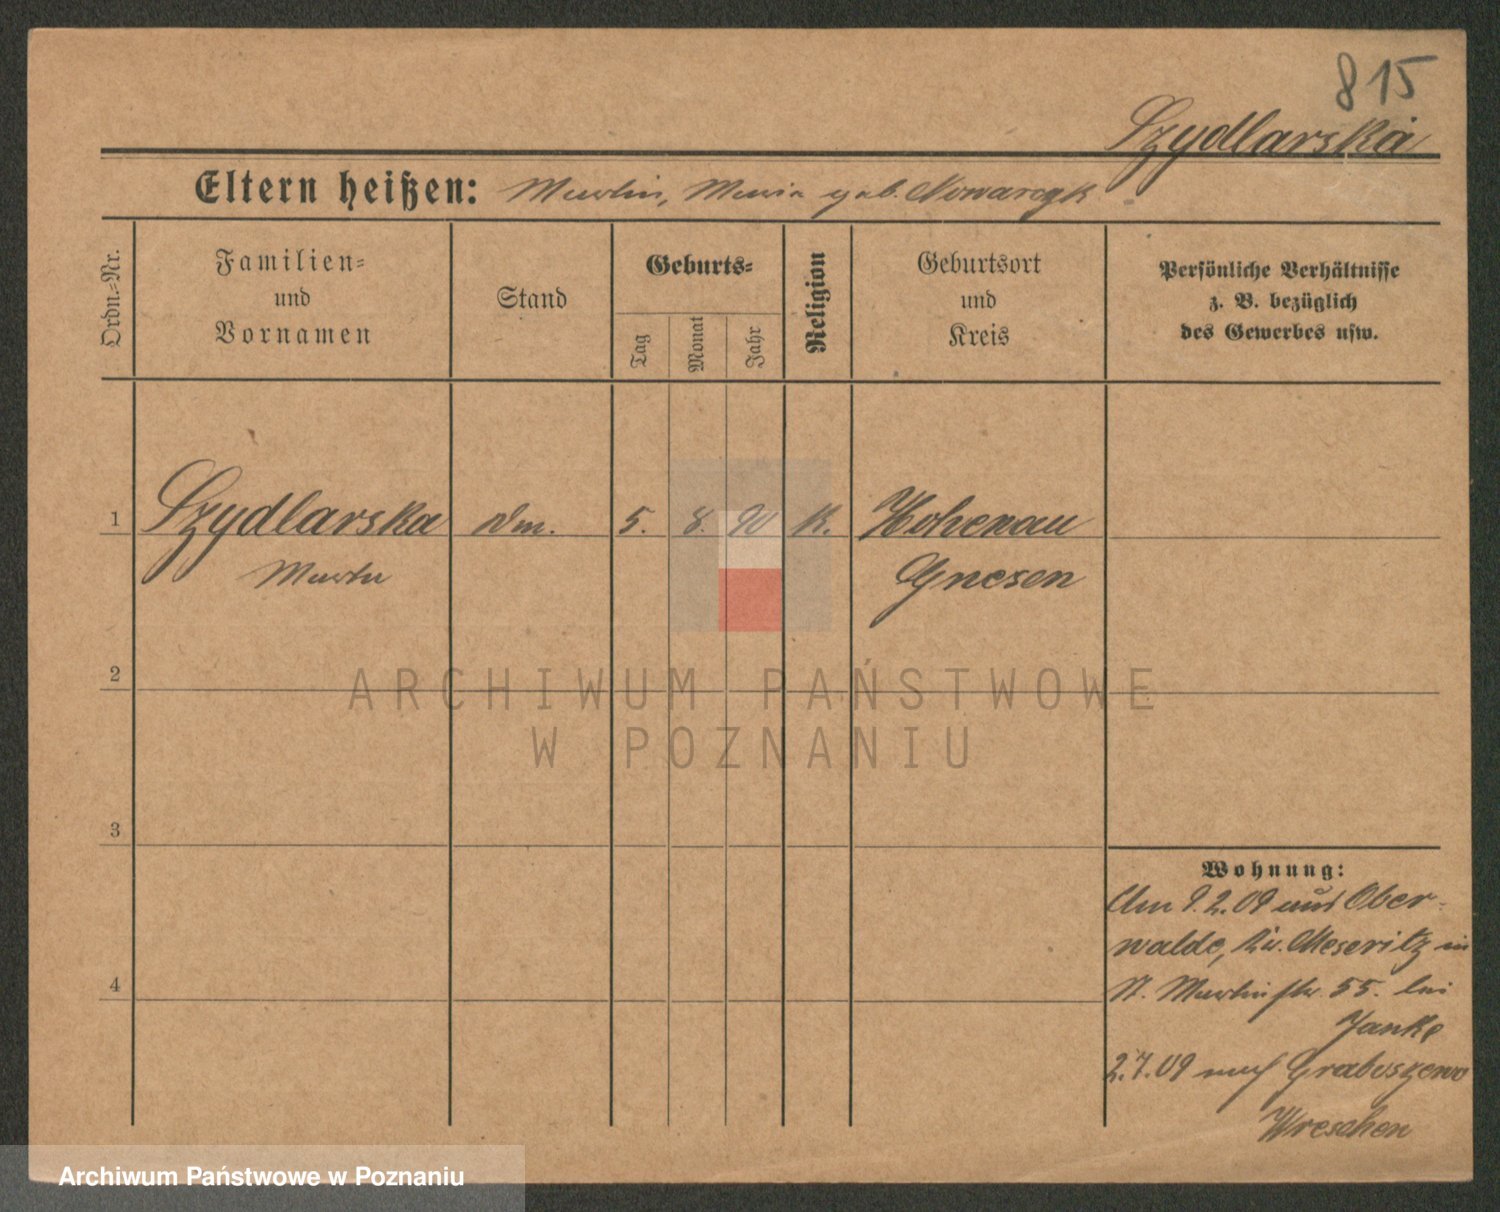 815
Szydlarska
Eltern heißen: Martin, Maria geb. Nowaczyk
Ordn.=Nr.
Familien=
und
Vornamen
Stand
Geburts=
Tag
Monat
Jahr
Religion
Geburtsort
und
Kreis
Persönliche Verhältnisse
z. B. bezüglich
des Gewerbes usw.
1 Szydlarska 5. 8. 90 K. Hohenau
Gnesen
2
3
4
Wohnung:
Am 9.2.09 aus Ober-
walde, Kr. Meseritz in
St. Martinstr. 55. bei
Janke
2.7.09 nach Graboszewo
Wreschen
ARCHIWUM PAŃSTWOWE
W POZNANIU
Archiwum Państwowe w Poznaniu